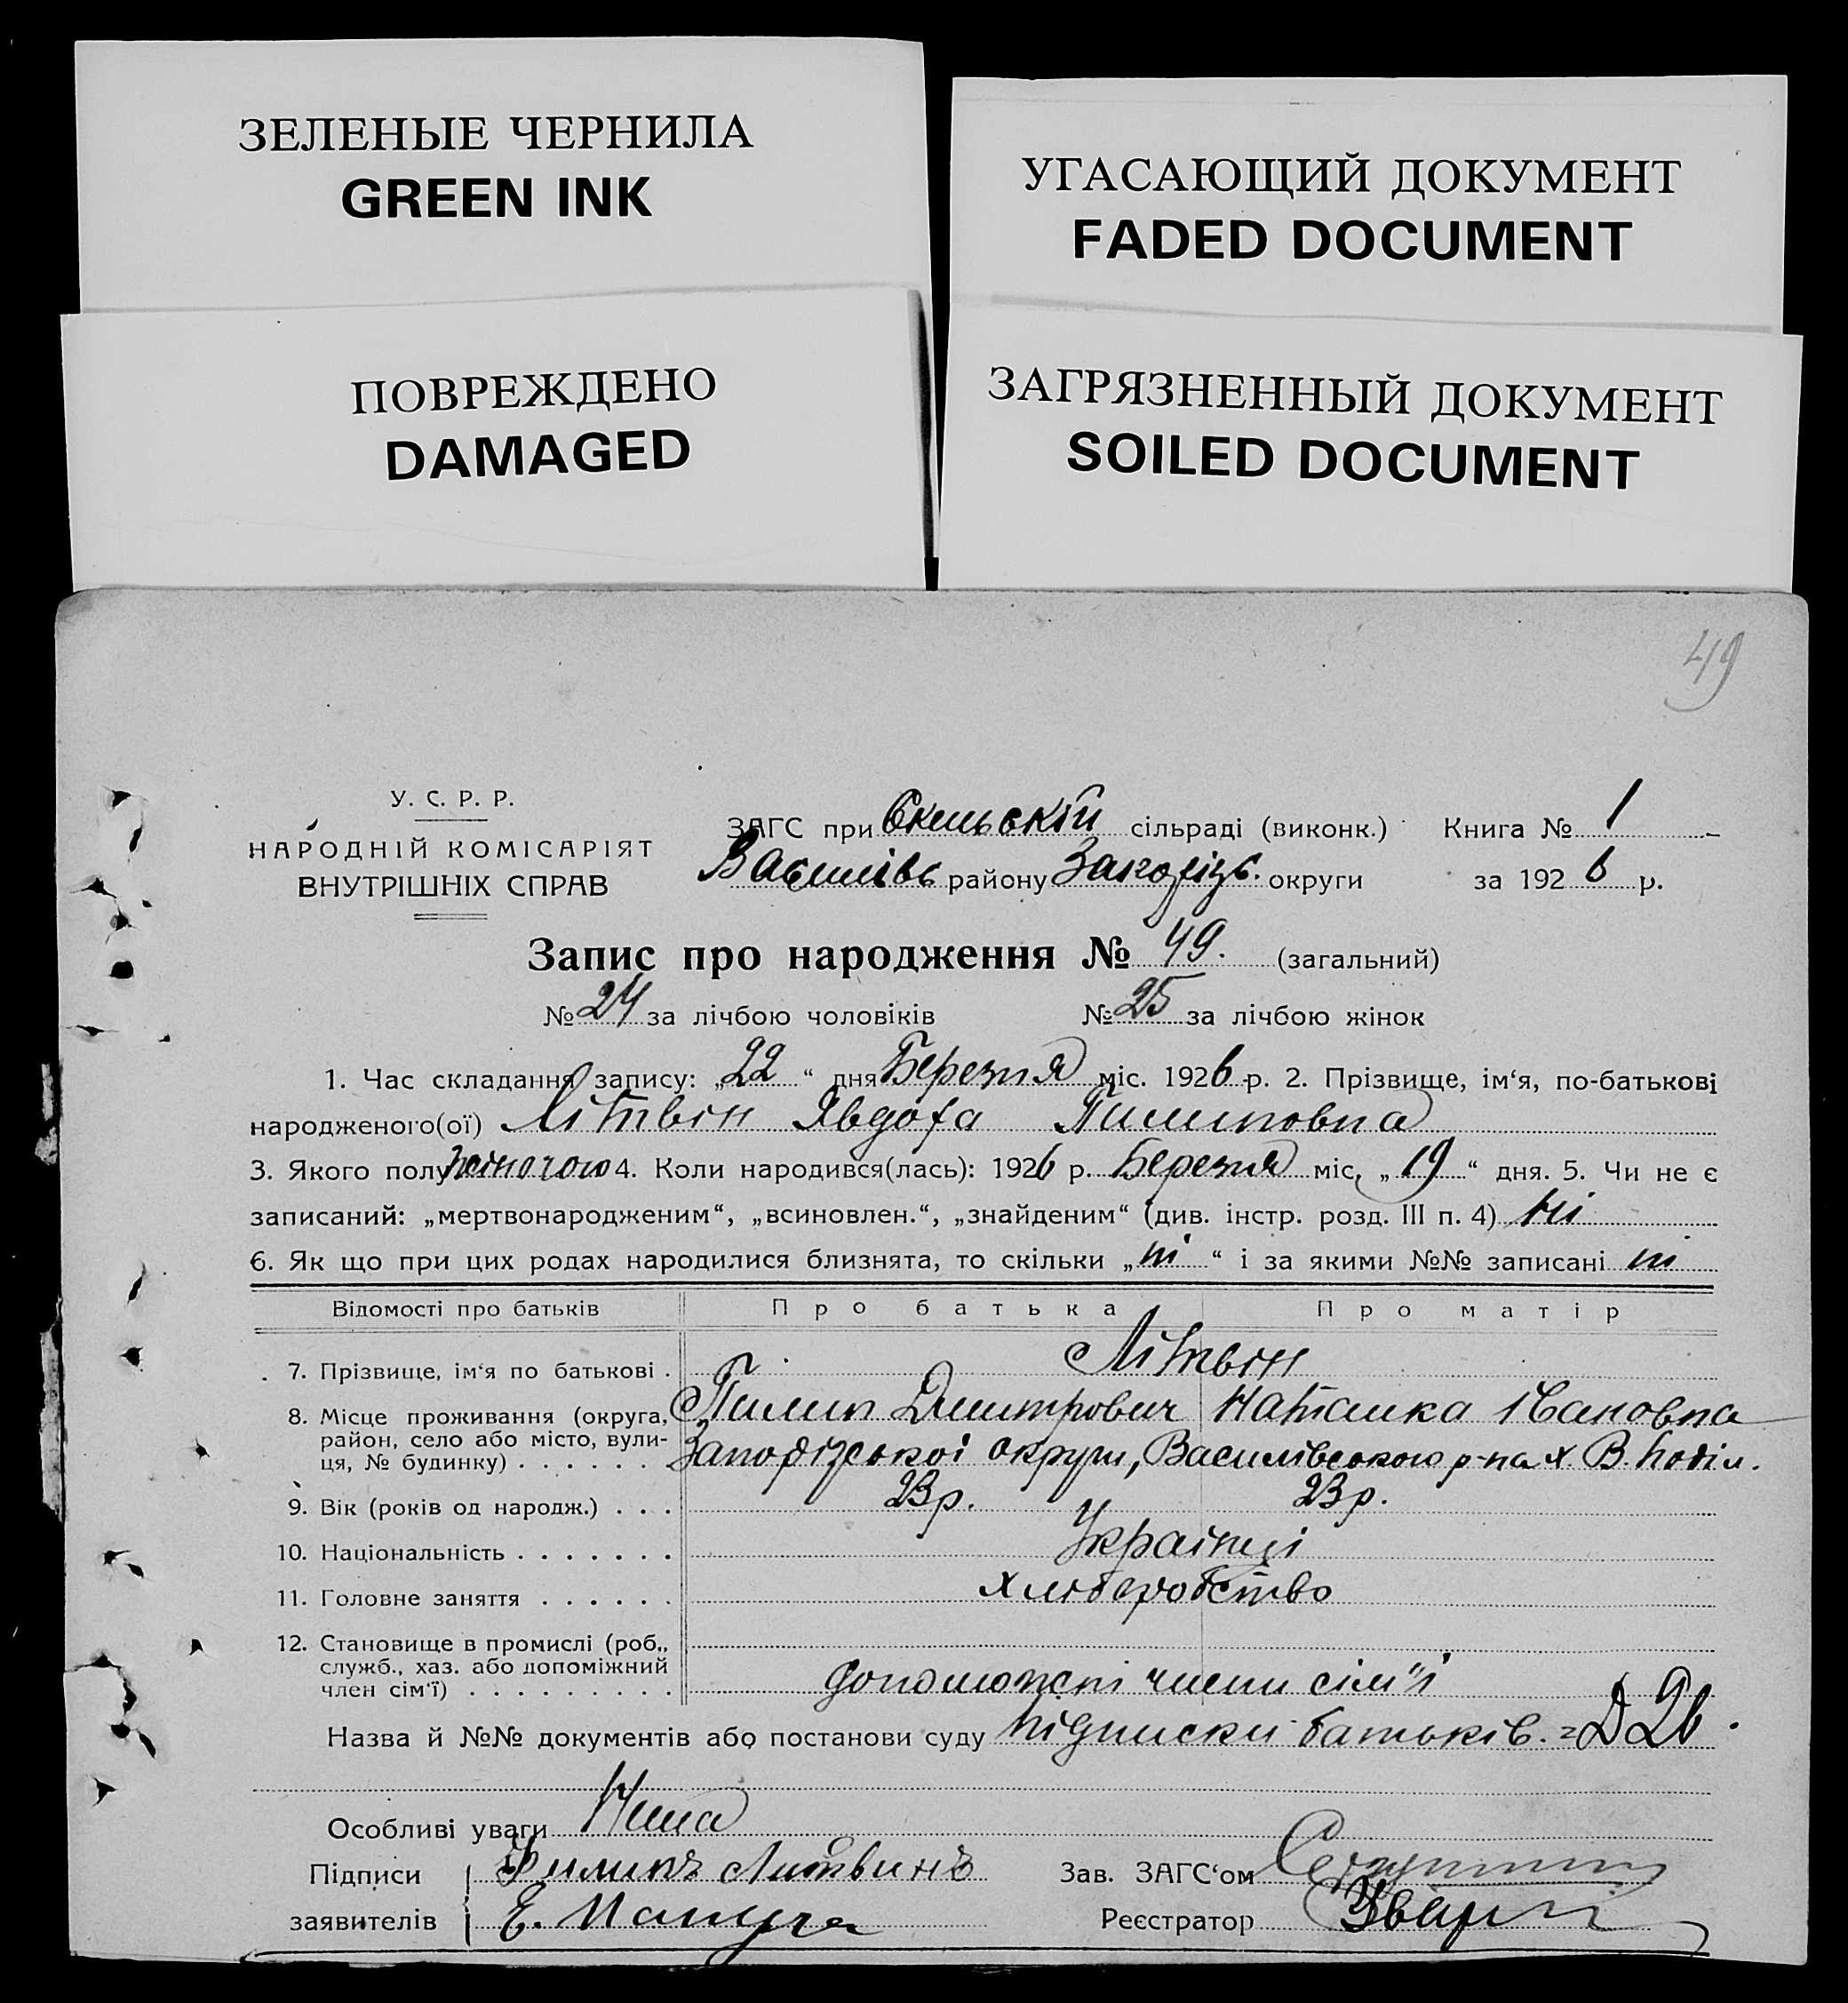 ЗЕЛЕНЫЕ ЧЕРНИЛА
GREEN INK
УГАСАЮЩИЙ ДОКУМЕНТ
FADED DOCUMENT
ПОВРЕЖДЕНО
DAMAGED
ЗАГРЯЗНЕННЫЙ ДОКУМЕНТ
SOILED DOCUMENT
49
У. С. Р. Р.
НАРОДНІЙ КОМІСАРІЯТ
ВНУТРІШНІХ СПРАВ
ЗАГС при Скельскій сільраді (виконк.) Книга № 1
Василівс району Запоріжс. округи за 1926 р.
Запис про народження № 49. (загальний)
№ 24 за лічбою чоловіків № 25 за лічбою жінок
1. Час складання запису: „22“ дня Березня міс. 1926 р. 2. Прізвище, ім‘я, по-батькові
народженого(ої) Літвін Явдоха Пилиповна
3. Якого полу жіночою 4. Коли народився(лась): 1926 р. Березня міс. „19“ дня. 5. Чи не є
записаний: „мертвонародженим“, „всиновлен.“, „знайденим“ (див. інстр. розд. III п. 4) ні
6. Як що при цих родах народилися близнята, то скільки „ні“ і за якими №№ записані ні
Відомості про батьків Про батька Про матір
7. Прізвище, ім‘я по батькові . Літвін
Пилип Дмитрович Наталка Івановна
8. Місце проживання (округа,
район, село або місто, вули-
ця, № будинку) . . . . . . Запорізської округи, Василівського р-на х. В.
9. Вік (років од народж.) . . . 23 р. 23 р.
10. Національність . . . . . . . Українці
11. Головне заняття . . . . . . хліборобство
12. Становище в промислі (роб.,
служб., хаз. або допоміжний
член сім‘ї) . . . . . . . . . допоможні члени сім"ї
Назва й №№ документів або постанови суду підписки батьків.
Особливі уваги Нема
Підписи Филипъ Литвинъ Зав. ЗАГС‘ом
заявителів Е. Реєстратор